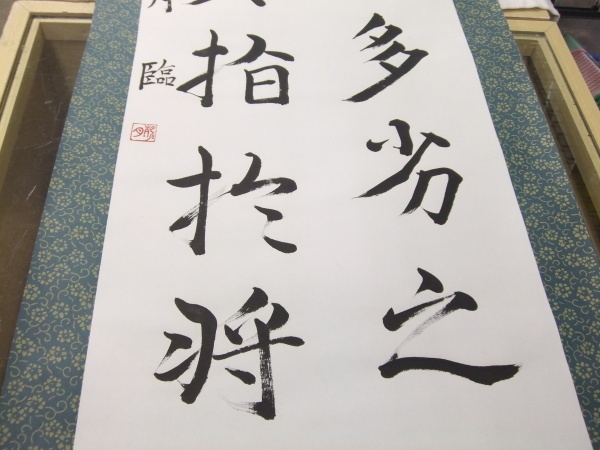 多劣之
指扵将
臨